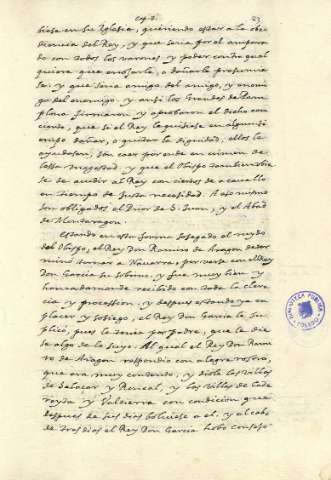 Cap. 2. 23
biese en su Iglesia, queriendo estar a la obe
diencia del Rey, y que seria por el ampara
do con todos los varones y poder contra qual
quiera que enojarle, o dañarle presumie
se: y que seria amigo del amigo, y enemi
go del enemigo. y ansi los Grandes de Pam
plona firmaron y aprobaron el dicho con
cierto, que si el Rey le quisiese en algun ti
empo dañar, o quitar la dignidad, ellos le
ayudasen, sin caer por ende en crimen de
lesa Magestad y que el Obispo tambien obie
se de acudir al Rey con cientos de a cavallo
en tiempo de justa necesidad. A eso mismo
son obligados el Prior de S. Juan, y el Abad
de Montaragon.
Estando en esta forma sosegado el ruydo
del Obispo, el Rey Don Ramiro de Aragon deter
minó tornar a Navarra, por verse con el Rey
Don Garcia su sobrino, y fue muy bien y
honradamente recibido con toda la clere
cia y procession, y despues estando ya en
placer y sosiego, el Rey Don Garcia le su
plicó, pues le tenia por padre, que le die
se algo de lo suyo. Al qual el Rey Don Rami
ro de Aragon respondio con alegre rostro,
que era muy contento, y diole las villas
de Salaçar y Roncal, y las villas de Cade
reyda y Valtierra con condicion que
despues de sus dias bolviese a el. y al cabo
de tres dias el Rey Don Garcia hobo consejo
BIBLIOTECA PUBLICA
TOLEDO